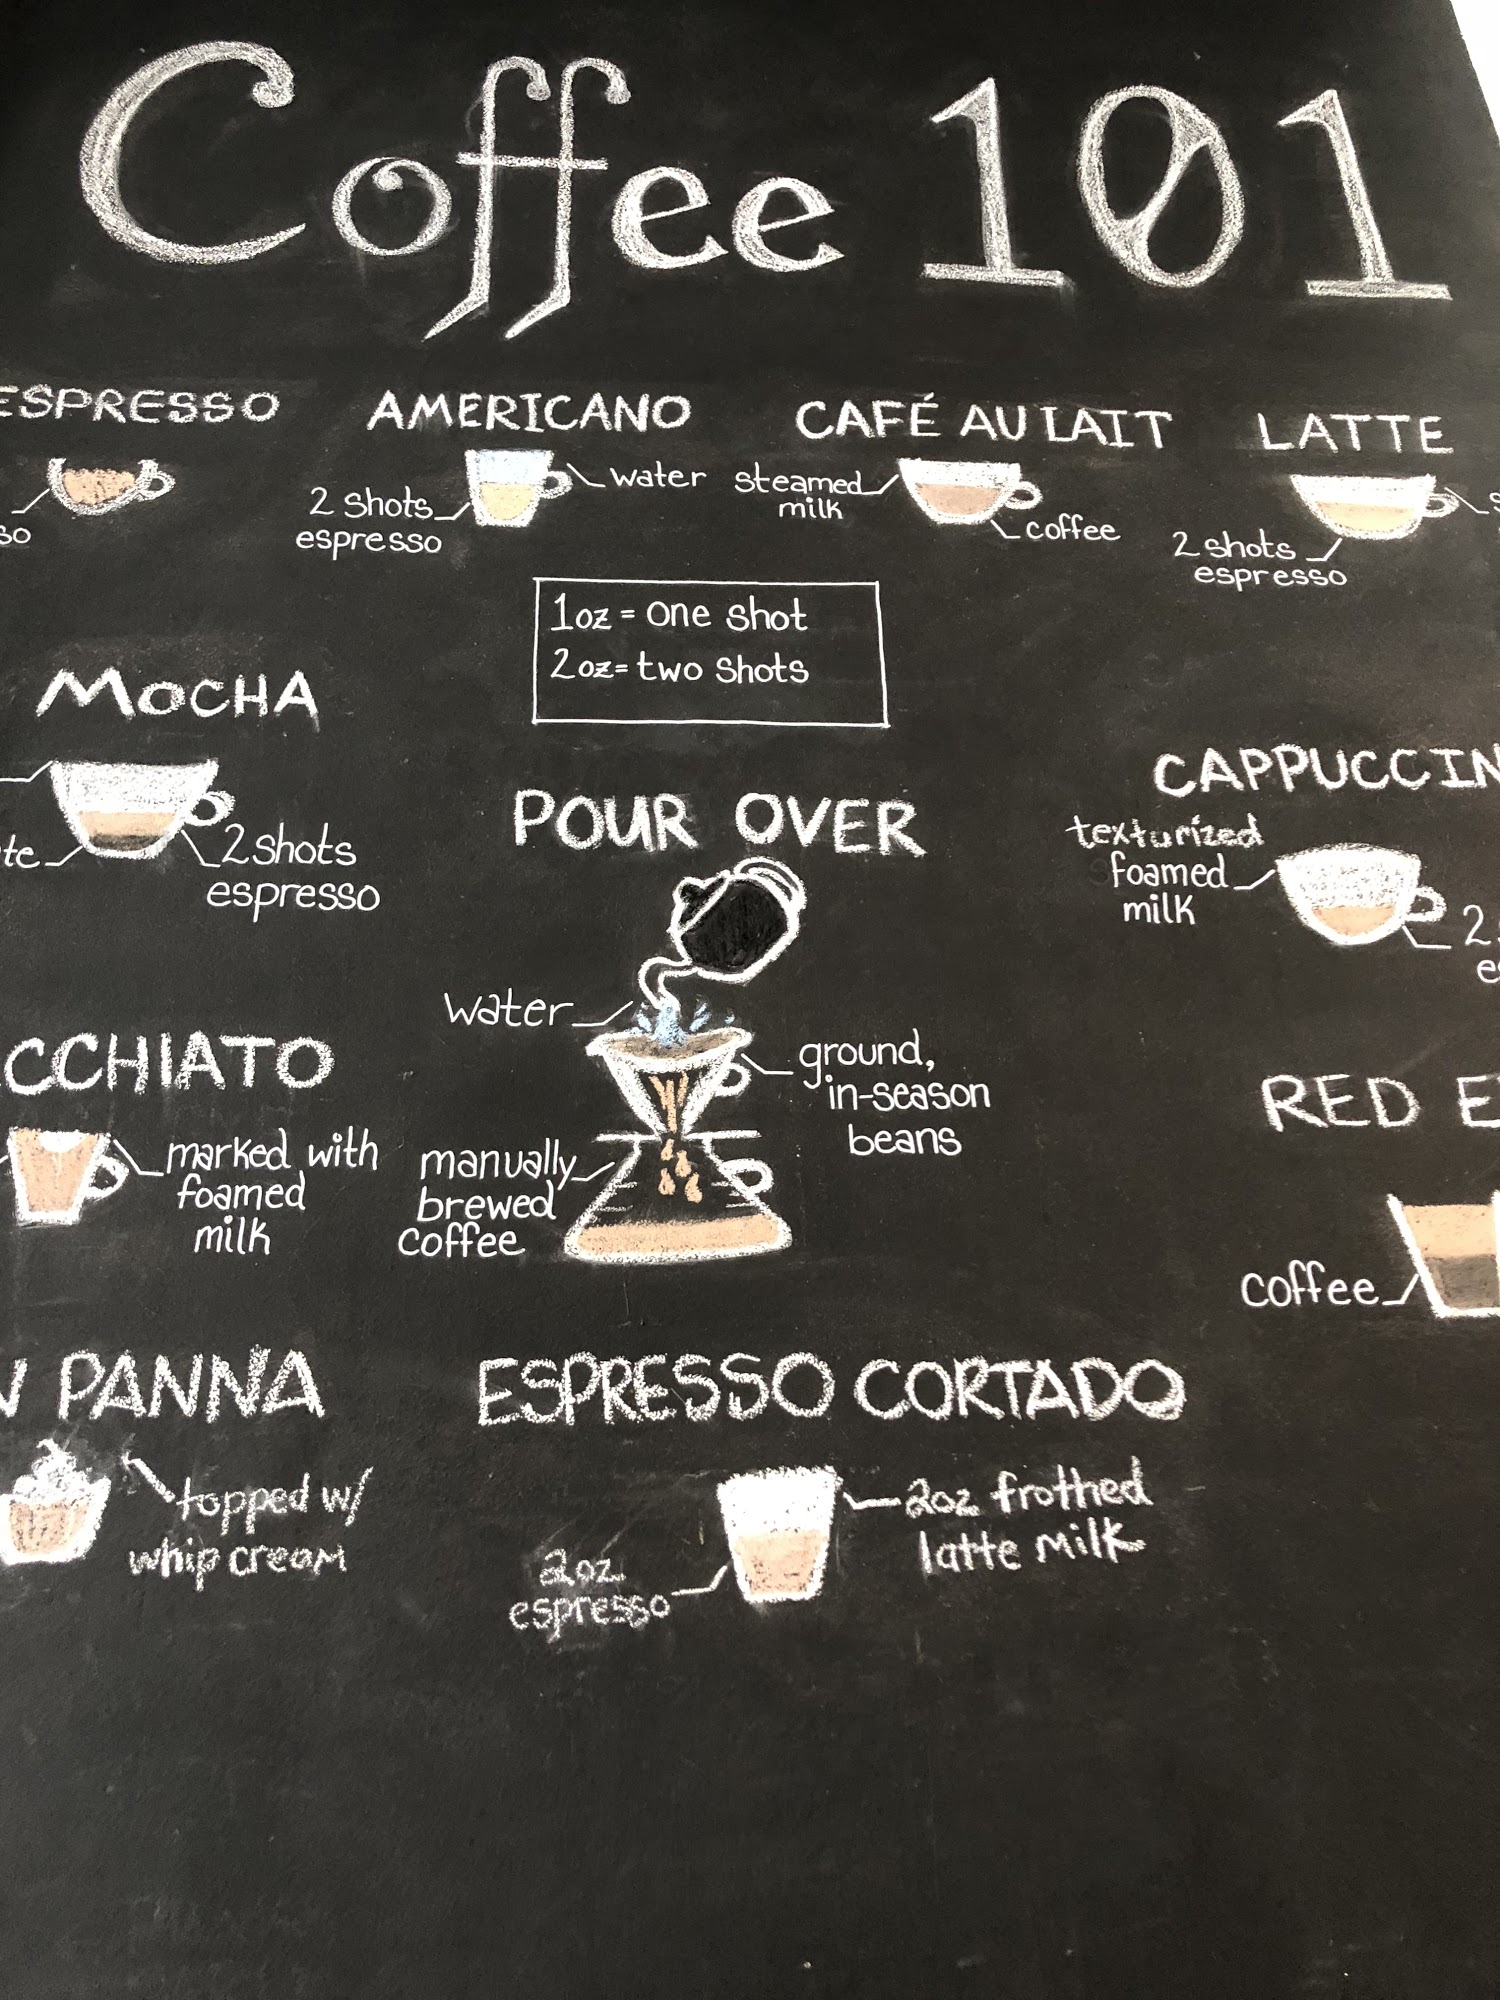 Coffee 101
ESPRESSO
AMERICANO
2 shots
espresso
water
CAFÉ AU LAIT
steamed
milk
coffee
LATTE
2 shots
espresso
1oz = one shot
2oz = two shots
MOCHA
2 shots
espresso
POUR OVER
water
ground,
in-season
beans
manually
brewed
coffee
CAPPUCCIN
texturized
foamed
milk
2
CCHIATO
marked with
foamed
milk
RED E
coffee
PANNA
topped w/
whip cream
ESPRESSO CORTADO
2oz
espresso
2oz frothed
latte milk